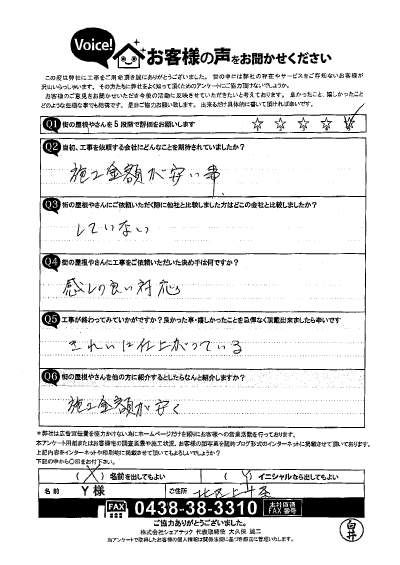 Voice!
お客様の声をお聞かせください
この度は弊社に工事をご用命頂き誠にありがとうございました。世の中には弊社の存在やサービスをご存知ないお客様が
沢山いらっしゃいます。その方たちに弊社をよく知って頂くためのアンケートにご協力頂けないでしょうか。
お客様のご意見をお聞かせいただき今後の活動に反映させていただきたいと考えております。良かったこと、嬉しかったこと
どのような些細な事でも結構です。是非ご協力お願い致します。出来るだけ具体的に書いて頂ければ幸いです。
Q1 街の屋根やさんを5段階で評価をお願いします ☆ ☆ ☆ ☆ ☆
Q2 当初、工事を依頼する会社にどんなことを期待されていましたか?
施工金額が安い事
Q3 街の屋根やさんにご依頼いただく際に他社と比較しました方はどこの会社と比較しましたか?
していない
Q4 街の屋根やさんに工事をご依頼いただいた決め手は何ですか?
感じの良い対応
Q5 工事が終わってみていかがですか?良かった事・嬉しかったことを忌憚なく頂戴出来ましたら幸いです
きれいに仕上がっている
Q6 街の屋根やさんを他の方に紹介するとしたらなんと紹介しますか?
施工金額が安く
*弊社は広告宣伝費を極力かけない為にホームページだけを頼りにお客様への営業活動を行っております。
本アンケート用紙またはお客様宅の調査風景や施工状況、お客様の御写真を随時ブログ形式のインターネットに掲載させて頂いております。
上記内容をインターネットや印刷物に掲載させて頂いてもよろしいでしょうか?
下記の中から〇印をお付下さい。
( )名前を出してもよい ( )イニシャルなら出してもよい
名前 Y 様 ご住所
FAX 0438-38-3310 本社直通 FAX番号
ご協力ありがとうございました。
株式会社シェアテック 代表取締役 大久保 誠二
当アンケートで取得したお客様の個人情報は関係法規に基づき適正に管理いたします。
白井